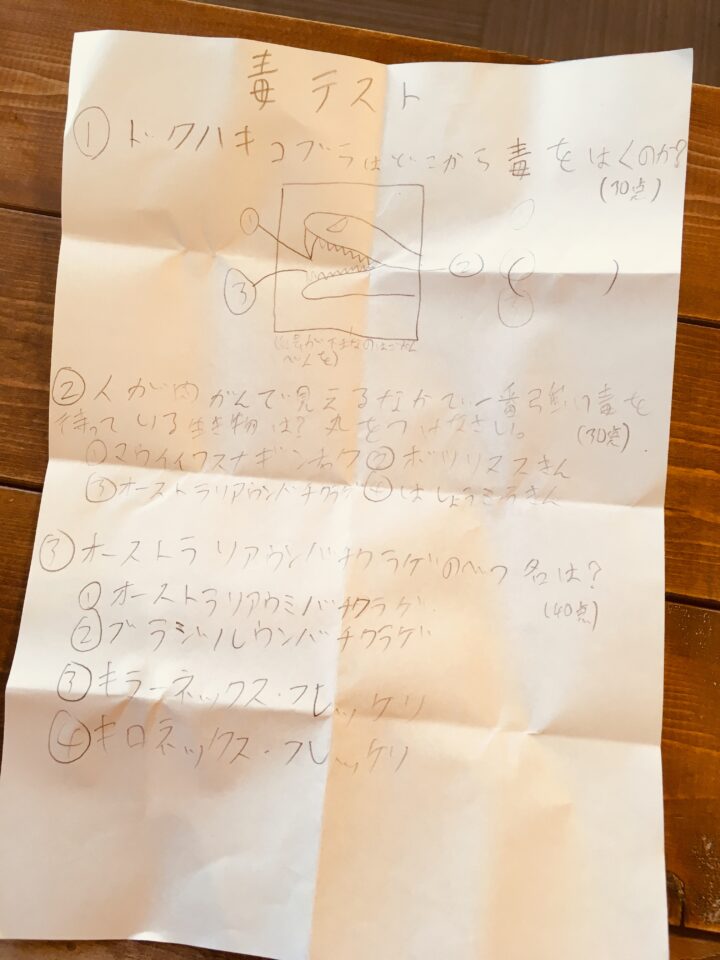 毒テスト
① ドクハキコブラはどこから毒をはくのか?
(10点)
①
③
② ( )
(絵が下手なのはごかん
べんを)
② 人が肉がんで見えるなかで、一番強い毒を
待っている生き物は? 丸をつけなさい。
(30点)
① マウイイワスナギンチャク ② ボツリヌスきん
③ オーストラリアウンバチクラゲ ④ はしょうふうきん
③ オーストラリアウンバチクラゲのべつ名は?
(40点)
① オーストラリアウミバチクラゲ
② ブラジルウンバチクラゲ
③ キラーネックス・フレッケリ
④ キロネックス・フレッケリ